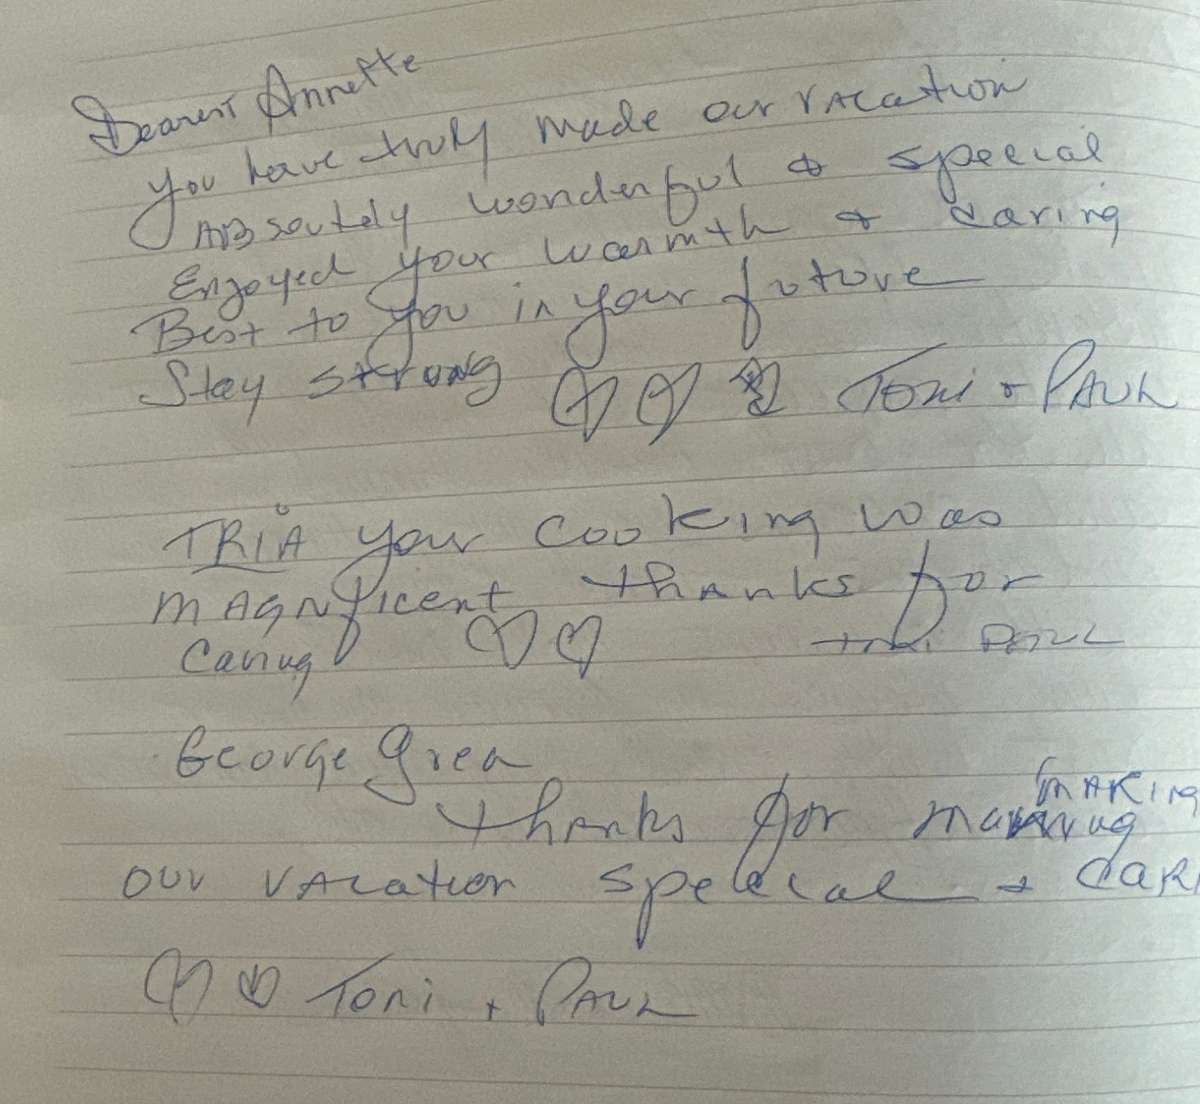 Dearest Annette
You have truly made our vacation
ABsoutely wonderful & special
Enjoyed your warmth & caring
Best to you in your future
Stay strong Toni + PAUL
TRIA your cooking was
MAGNificent thanks for
caring Toni PAUL
George Grea
thanks for making
our vacation special + CAR
Toni + PAUL